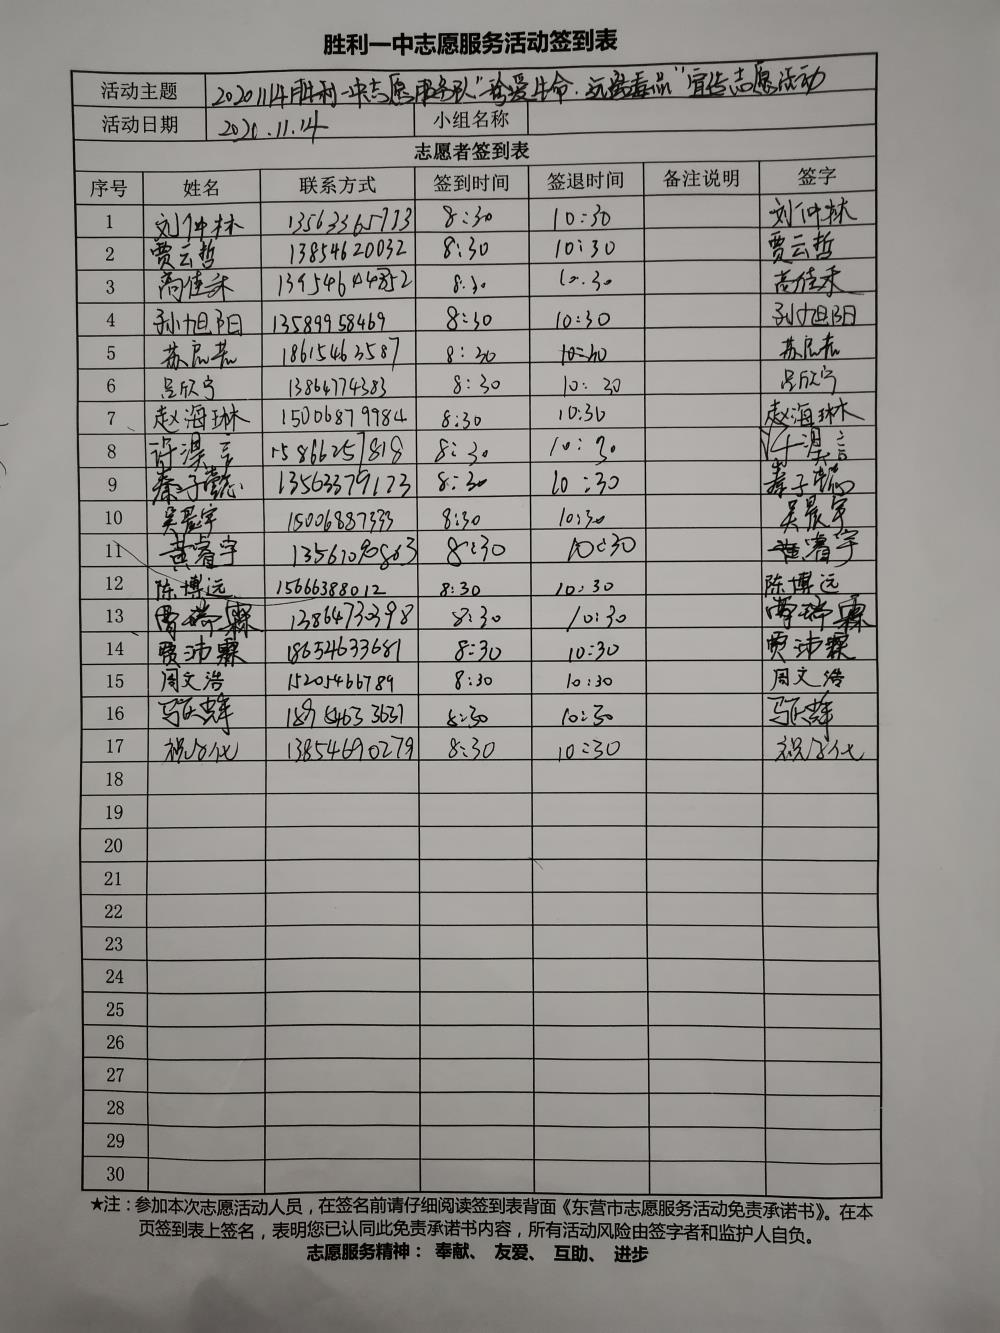 胜利一中志愿服务活动签到表
活动主题 20201114胜利一中志愿服务队"珍爱生命·远离毒品"宣传志愿活动
活动日期 2020.11.14 小组名称
志愿者签到表
序号 姓名 联系方式 签到时间 签退时间 备注说明 签字
1 刘仲林 13563365773 8:30 10:30 刘仲林
2 贾云哲 13854620032 8:30 10:30 贾云哲
3 高佳禾 8:30 10:30 高佳禾
4 孙旭阳 13589958469 8:30 10:30 孙旭阳
5 18615463587 8:30 10:30
6 吕欣宁 13864774383 8:30 10:30 吕欣宁
7 赵海琳 15006879984 8:30 10:30 赵海琳
8 许淏言 15866257818 8:30 10:30 许淏言
9 秦子懿 13563379173 8:30 10:30 秦子懿
10 吴晨宇 15006887333 8:30 10:30 吴晨宇
11 黄睿宇 13561090863 8:30 10:30 黄睿宇
12 陈博远 15666388012 8:30 10:30 陈博远
13 曹瑞霖 13864730398 8:30 10:30 曹瑞霖
14 贾沛霖 18654633681 8:30 10:30 贾沛霖
15 周文浩 15205466789 8:30 10:30 周文浩
16 8:30 10:30
17 13854690279 8:30 10:30
18
19
20
21
22
23
24
25
26
27
28
29
30
★注：参加本次志愿活动人员，在签名前请仔细阅读签到表背面《东营市志愿服务活动免责承诺书》。在本
页签到表上签名，表明您已认同此免责承诺书内容，所有活动风险由签字者和监护人自负。
志愿服务精神： 奉献、 友爱、 互助、 进步